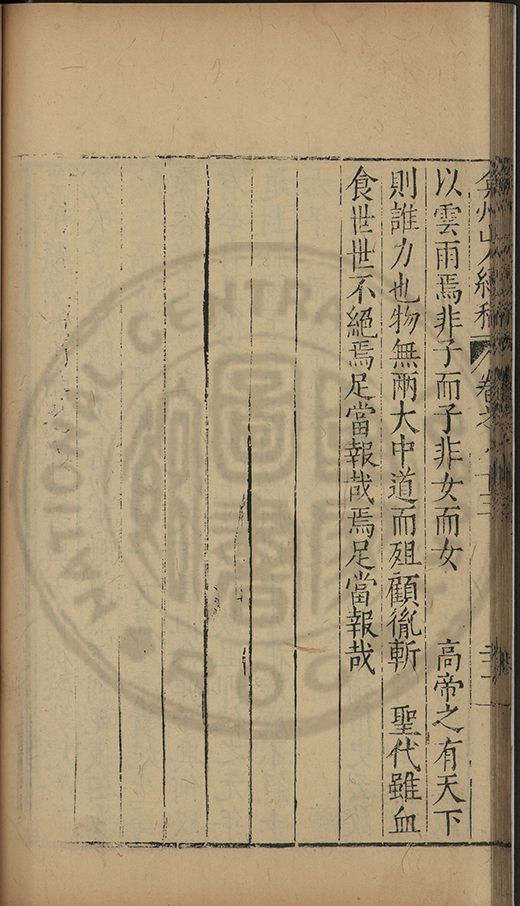 弇州山人續稿 卷之八十三
以雲雨焉非子而子非女而女 高帝之有天下
則誰力也物無兩大中道而殂顧胤斬 聖代雖血
食世世不絕焉足當報哉焉足當報哉